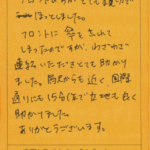 ほっとしました。
フロントに傘を忘れて
しまったのですが、わざわざ
連絡いただきとても助かり
ました。駅からも近く国際
通りにも15分ほどで立地も良く
助かりました。
ありがとうございます。